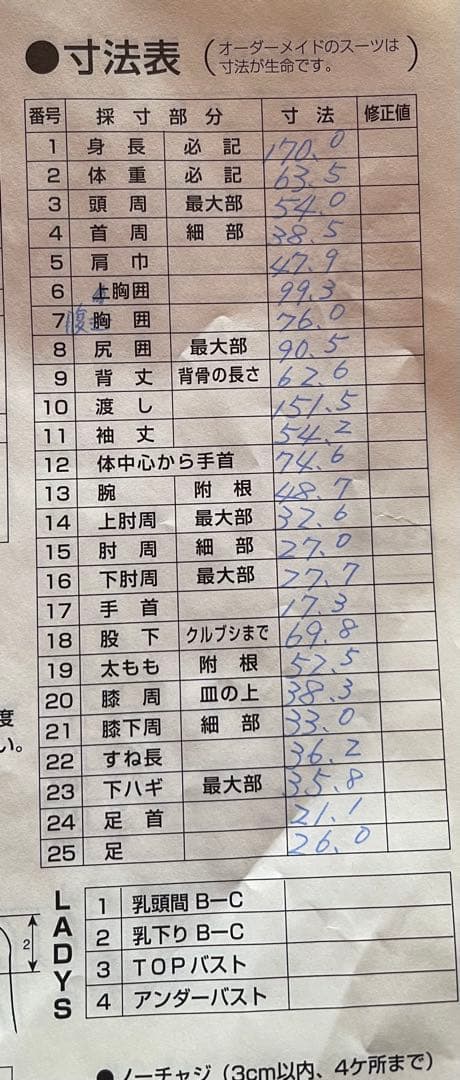 ●寸法表 (オーダーメイドのスーツは
寸法が生命です。)
番号 採寸部分 寸法 修正値
1 身長 必記 170.0
2 体重 必記 63.5
3 頭周 最大部 54.0
4 首周 細部 38.5
5 肩巾 47.9
6 上胸囲 99.3
7 腹 胸囲 76.0
8 尻囲 最大部 90.5
9 背丈 背骨の長さ 62.6
10 渡し 151.5
11 袖丈 54.2
12 体中心から手首 74.6
13 腕 附根 48.7
14 上肘周 最大部 32.6
15 肘周 細部 27.0
16 下肘周 最大部 27.7
17 手首 17.3
18 股下 クルブシまで 69.8
19 太もも 附根 52.5
20 膝周 皿の上 38.3
21 膝下周 細部 33.0
22 すね長 36.2
23 下ハギ 最大部 35.8
24 足首 21.1
25 足 26.0
度
い。
2
LADYS
1 乳頭間 B−C
2 乳下り B−C
3 TOPバスト
4 アンダーバスト
●ノーチャジ(3cm以内、4ケ所まで)